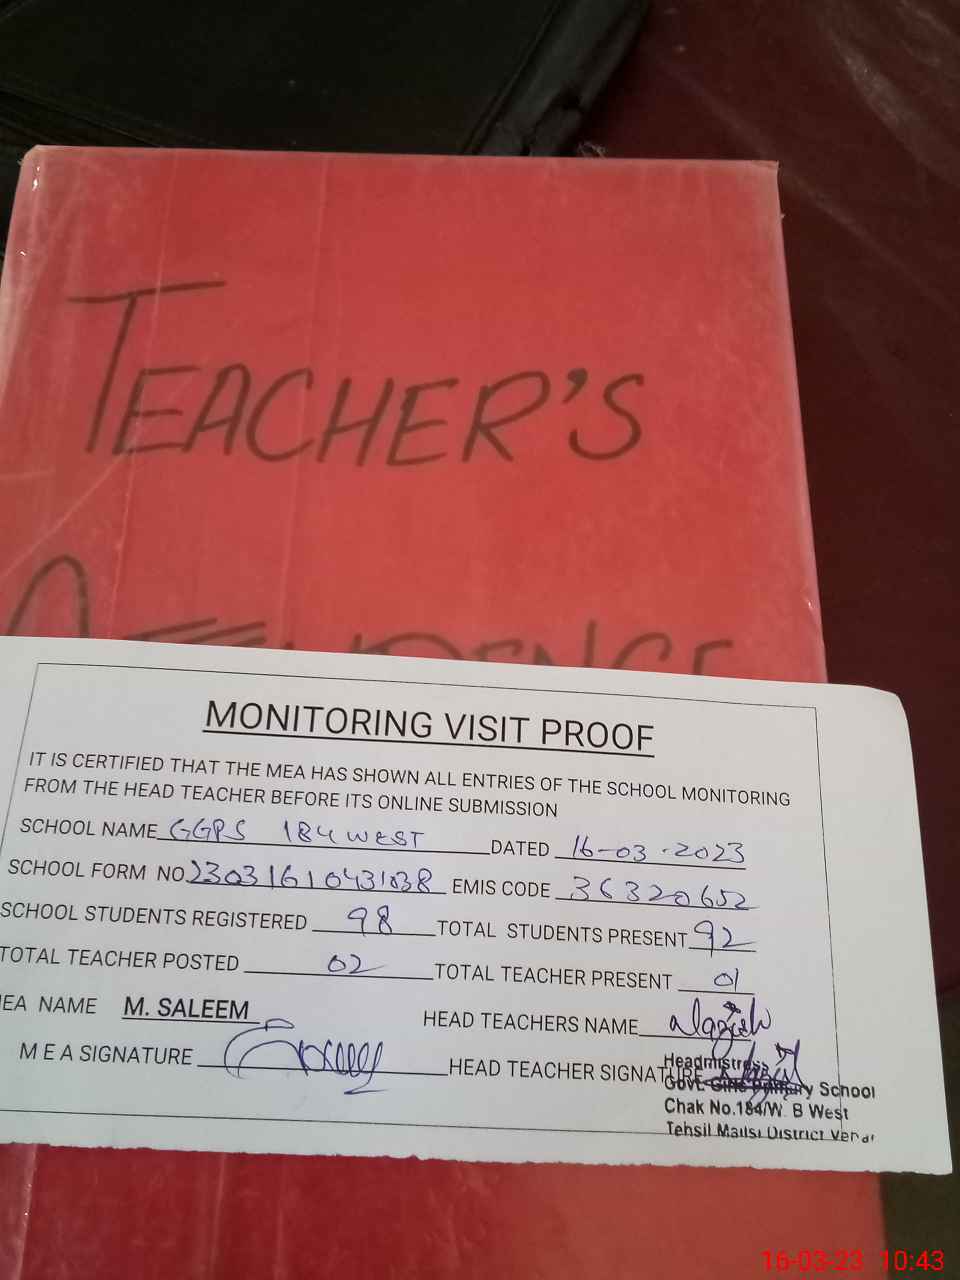 TEACHER'S
MONITORING VISIT PROOF
IT IS CERTIFIED THAT THE MEA HAS SHOWN ALL ENTRIES OF THE SCHOOL MONITORING
FROM THE HEAD TEACHER BEFORE ITS ONLINE SUBMISSION
SCHOOL NAME GGPS 184 WEST DATED 16-03-2023
SCHOOL FORM NO. EMIS CODE 36320652
SCHOOL STUDENTS REGISTERED 98 TOTAL STUDENTS PRESENT 92
TOTAL TEACHER POSTED 02 TOTAL TEACHER PRESENT 01
NAME M. SALEEM HEAD TEACHERS NAME
M E A SIGNATURE HEAD TEACHER SIGNATURE
Headmistress
Govt. Girls Primary School
Chak No.184/W. B West
Tehsil Mailsi District
16-03-23 10:43